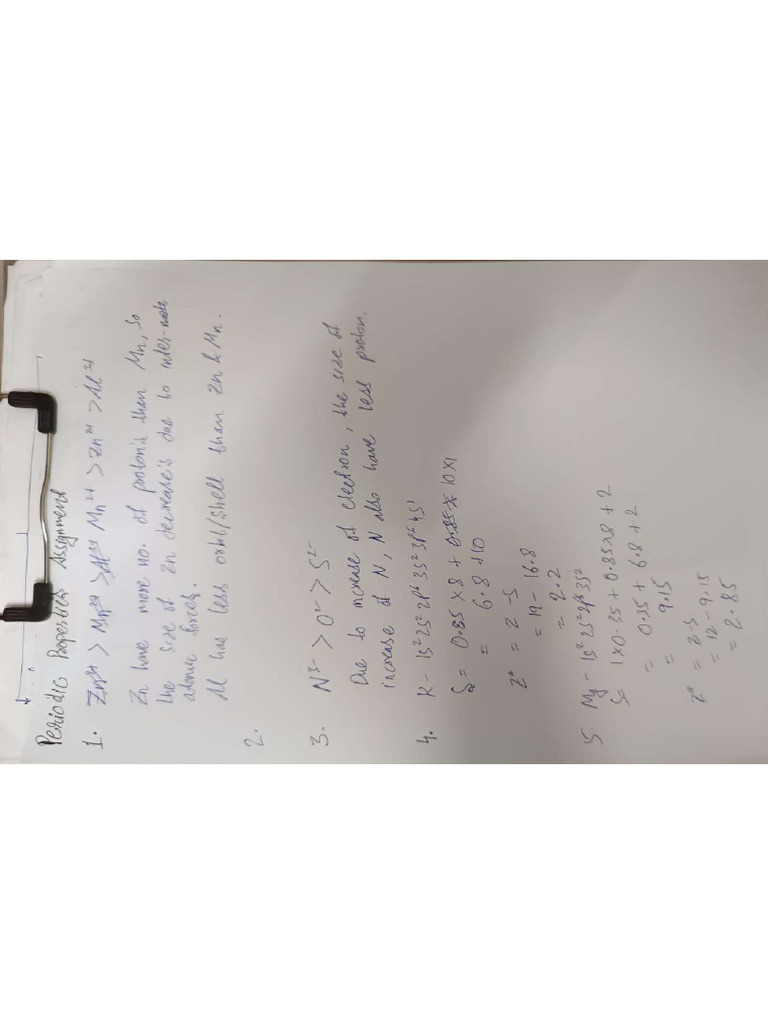 Periodic Properties Assignment
1. Zn²⁺ > Mn²⁺ > Al³⁺ Mn²⁺ > Zn²⁺ > Al³⁺
Zn have more no. of proton's than Mn, so
the size of Zn decrease's due to inter-
atomic forces.
Al has less orbit/shell than Zn & Mn.
2.
3. N³⁻ > O²⁻ > S²⁻
Due to increase of electron, the size of
increase of N, N also have less proton.
4. K - 1s² 2s² 2p⁶ 3s² 3p⁶ 4s¹
S = 0.85 × 8 + 0.85 × 10×1
= 6.8 + 10
Z* = Z - S
= 19 - 16.8
= 2.2
5. Mg - 1s² 2s² 2p⁶ 3s²
S = 1×0.35 + 0.85×8 + 2
= 0.35 + 6.8 + 2
= 9.15
Z* = Z-S
= 12 - 9.15
= 2.85